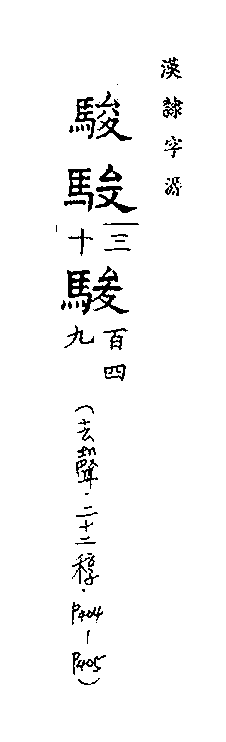 漢隸字源
駿駿三十駿百四九(去聲·二十二稕·P404-P405)